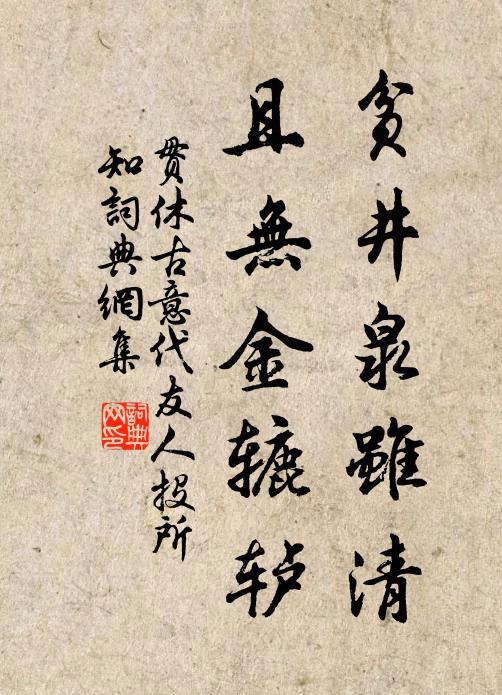 贫井泉雖清
且無金辘轳
贯休古意代友人投所
知詞典網集
詞典网印